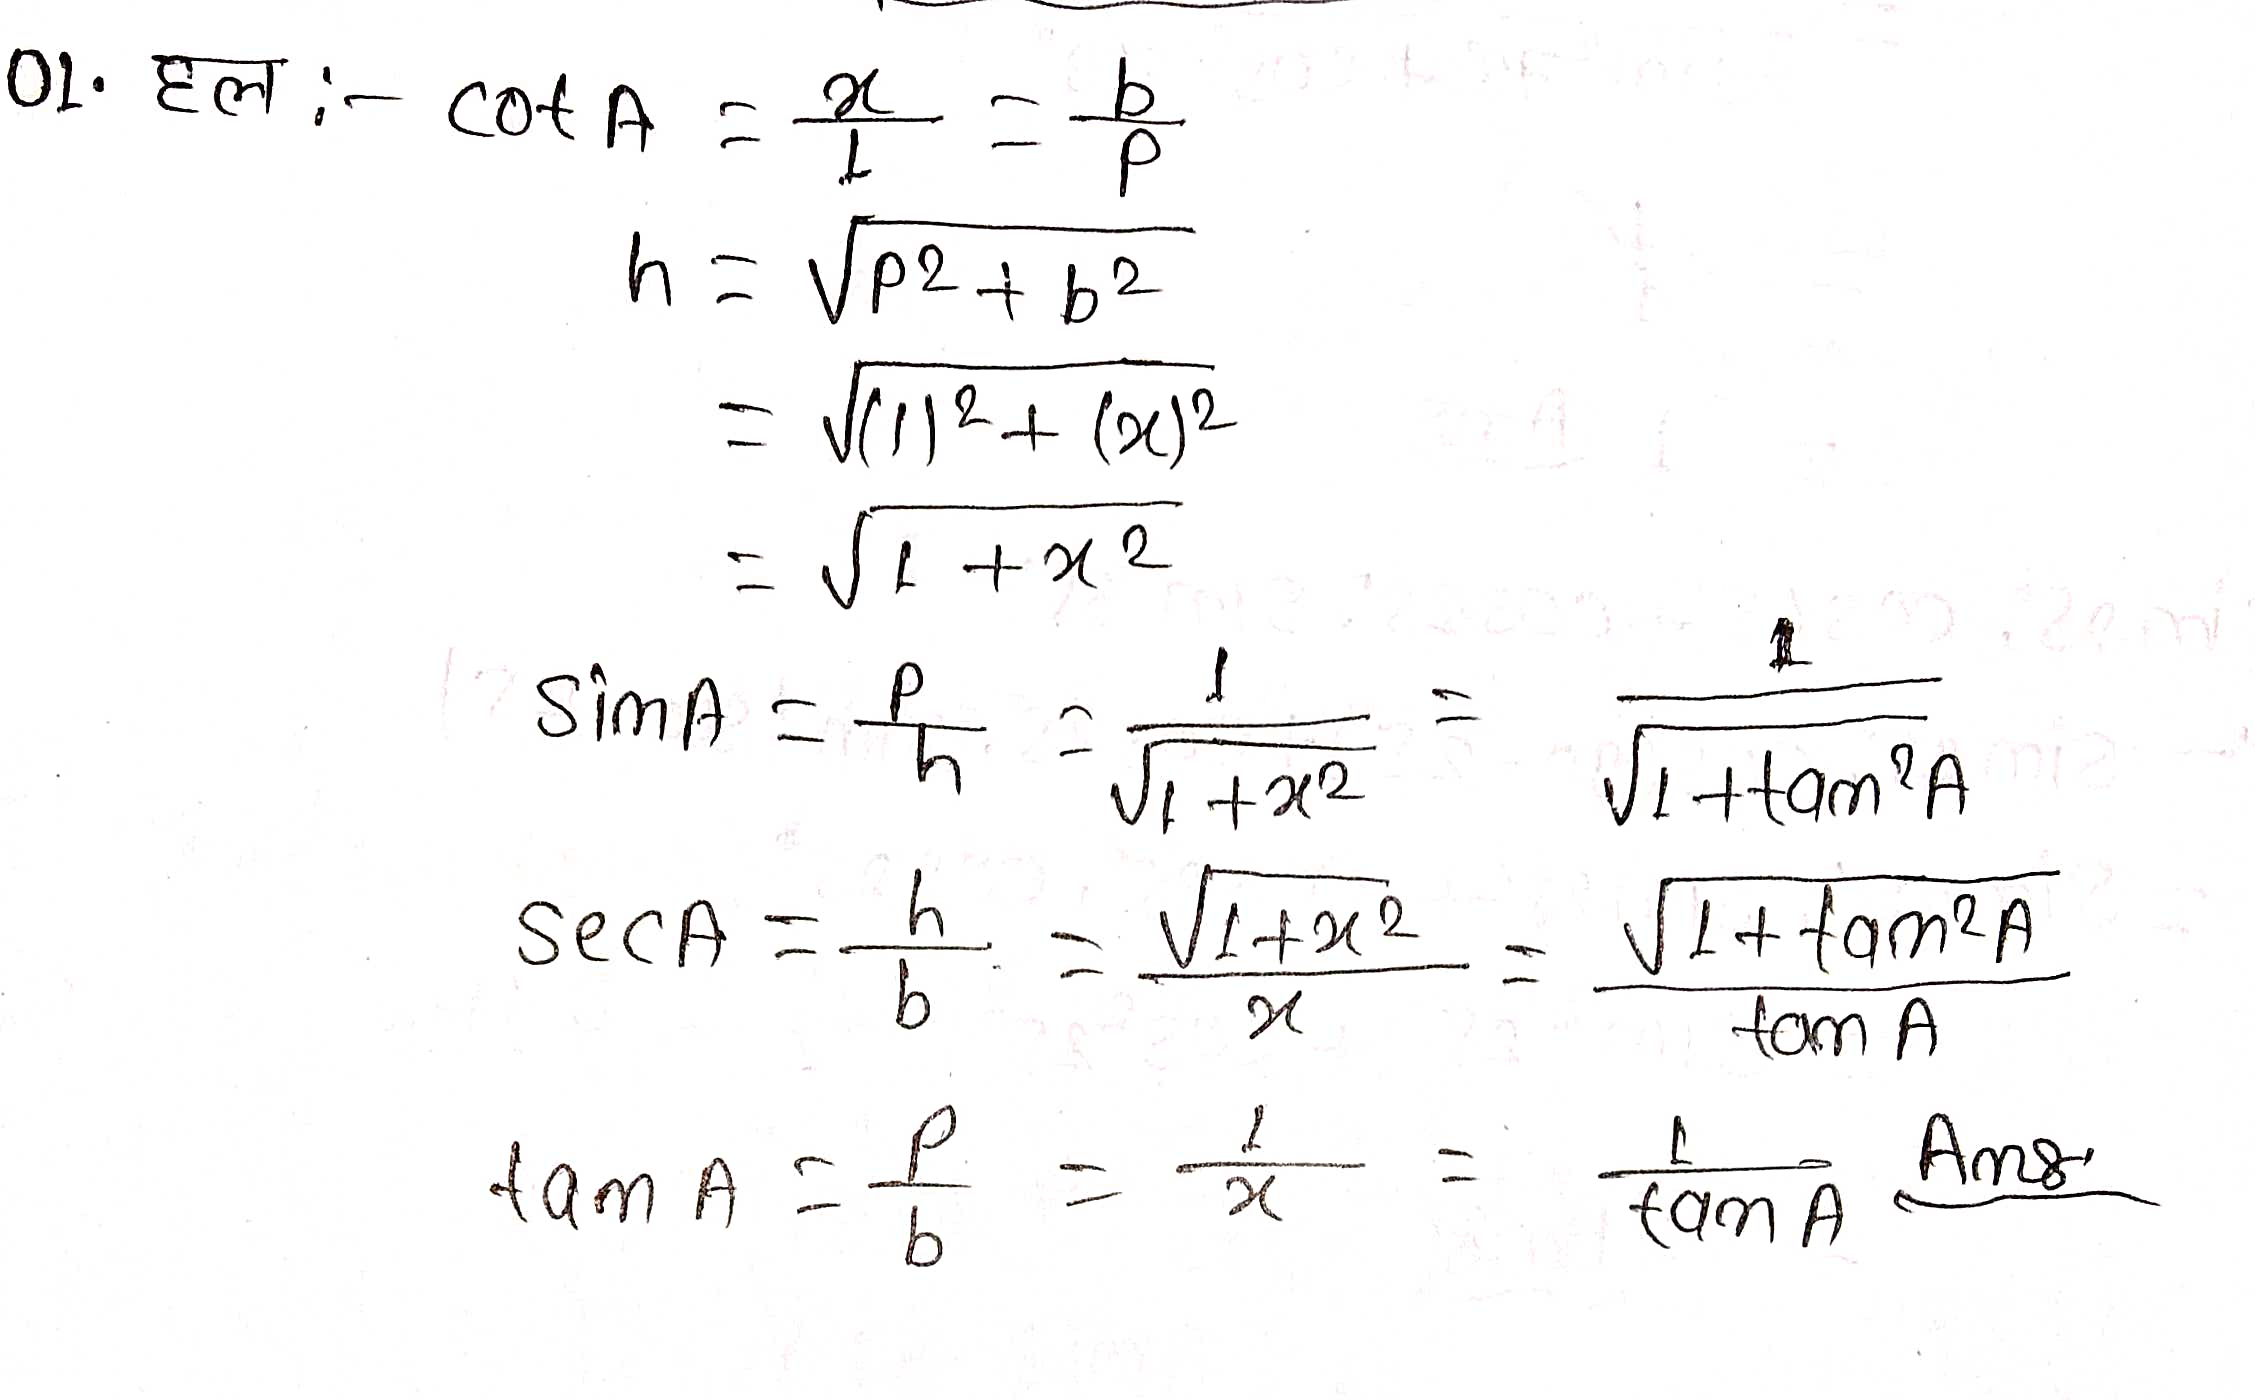 01. हल :- cot A = x/1 = b/p
h = √p2 + b2
= √(1)2 + (x)2
= √1 + x2
sinA = p/h = 1/√1+x2 = 1/√1+tan2A
secA = h/b = √1+x2/x = √1+tan2A/tan A
tan A = p/b = 1/x = 1/tan A Ans.